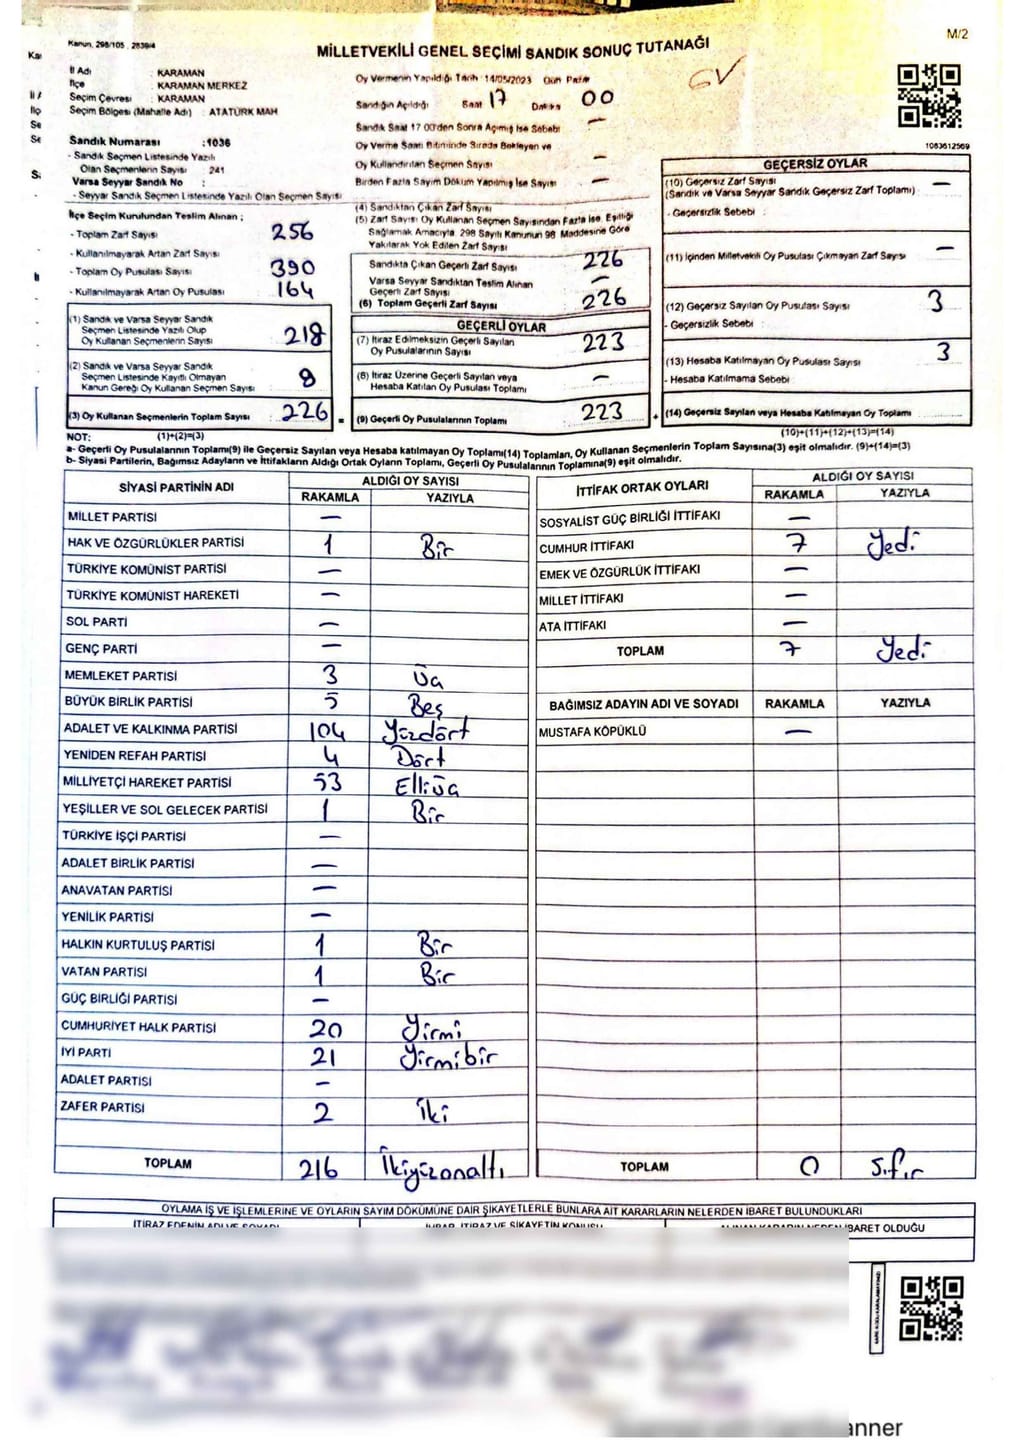 M/2
Kanun, 298/105, 2839/4
MİLLETVEKİLİ GENEL SEÇİMİ SANDIK SONUÇ TUTANAĞI
İl Adı : KARAMAN
İlçe : KARAMAN MERKEZ
Seçim Çevresi : KARAMAN
Seçim Bölgesi (Mahalle Adı) : ATATÜRK MAH
Sandık Numarası :1036
- Sandık Seçmen Listesinde Yazılı
Olan Seçmenlerin Sayısı : 241
Varsa Seyyar Sandık No :
- Seyyar Sandık Seçmen Listesinde Yazılı Olan Seçmen Sayısı
İlçe Seçim Kurulundan Teslim Alınan ;
- Toplam Zarf Sayısı 256
- Kullanılmayarak Artan Zarf Sayısı
- Toplam Oy Pusulası Sayısı 390
- Kullanılmayarak Artan Oy Pusulası 164
(1) Sandık ve Varsa Seyyar Sandık
Seçmen Listesinde Yazılı Olup
Oy Kullanan Seçmenlerin Sayısı 218
(2) Sandık ve Varsa Seyyar Sandık
Seçmen Listesinde Kayıtlı Olmayan
Kanun Gereği Oy Kullanan Seçmen Sayısı 8
(3) Oy Kullanan Seçmenlerin Toplam Sayısı 226 =
Oy Vermenin Yapıldığı Tarih 14/05/2023 Gün Pazar
Sandığın Açıldığı Saat 17 Dakika 00
Sandık Saat 17 00'den Sonra Açılmış İse Sebebi —
Oy Verme Saati Bitiminde Sırada Bekleyen ve
Oy Kullandırılan Seçmen Sayısı —
Birden Fazla Sayım Döküm Yapılmış İse Sayısı —
(4) Sandıktan Çıkan Zarf Sayısı
(5) Zarf Sayısı Oy Kullanan Seçmen Sayısından Fazla İse, Eşitliği
Sağlamak Amacıyla, 298 Sayılı Kanunun 98 Maddesine Göre
Yakılarak Yok Edilen Zarf Sayısı
Sandıkta Çıkan Geçerli Zarf Sayısı 226
Varsa Seyyar Sandıktan Teslim Alınan
Geçerli Zarf Sayısı —
(6) Toplam Geçerli Zarf Sayısı 226
GEÇERLİ OYLAR
(7) İtiraz Edilmeksizin Geçerli Sayılan
Oy Pusulalarının Sayısı 223
(8) İtiraz Üzerine Geçerli Sayılan veya
Hesaba Katılan Oy Pusulası Toplamı —
(9) Geçerli Oy Pusulalarının Toplamı 223 +
1083612569
GEÇERSİZ OYLAR
(10) Geçersiz Zarf Sayısı —
(Sandık ve Varsa Seyyar Sandık Geçersiz Zarf Toplamı)
- Geçersizlik Sebebi :
(11) İçinden Milletvekili Oy Pusulası Çıkmayan Zarf Sayısı —
(12) Geçersiz Sayılan Oy Pusulası Sayısı 3
- Geçersizlik Sebebi :
(13) Hesaba Katılmayan Oy Pusulası Sayısı 3
- Hesaba Katılmama Sebebi
(14) Geçersiz Sayılan veya Hesaba Katılmayan Oy Toplamı
NOT: (1)+(2)=(3) (10)+(11)+(12)+(13)=(14)
a- Geçerli Oy Pusulalarının Toplamı(9) ile Geçersiz Sayılan veya Hesaba katılmayan Oy Toplamı(14) Toplamları, Oy Kullanan Seçmenlerin Toplam Sayısına(3) eşit olmalıdır. (9)+(14)=(3)
b- Siyasi Partilerin, Bağımsız Adayların ve İttifakların Aldığı Ortak Oyların Toplamı, Geçerli Oy Pusulalarının Toplamına(9) eşit olmalıdır.
SİYASİ PARTİNİN ADI ALDIĞI OY SAYISI
RAKAMLA YAZIYLA
MİLLET PARTİSİ —
HAK VE ÖZGÜRLÜKLER PARTİSİ 1 Bir
TÜRKİYE KOMÜNİST PARTİSİ —
TÜRKİYE KOMÜNİST HAREKETİ —
SOL PARTİ —
GENÇ PARTİ —
MEMLEKET PARTİSİ 3 Üç
BÜYÜK BİRLİK PARTİSİ 5 Beş
ADALET VE KALKINMA PARTİSİ 104 Yüzdört
YENİDEN REFAH PARTİSİ 4 Dört
MİLLİYETÇİ HAREKET PARTİSİ 53 Elliüç
YEŞİLLER VE SOL GELECEK PARTİSİ 1 Bir
TÜRKİYE İŞÇİ PARTİSİ —
ADALET BİRLİK PARTİSİ —
ANAVATAN PARTİSİ —
YENİLİK PARTİSİ —
HALKIN KURTULUŞ PARTİSİ 1 Bir
VATAN PARTİSİ 1 Bir
GÜÇ BİRLİĞİ PARTİSİ —
CUMHURİYET HALK PARTİSİ 20 Yirmi
İYİ PARTİ 21 Yirmibir
ADALET PARTİSİ —
ZAFER PARTİSİ 2 İki
TOPLAM 216 İkiyüzonaltı
İTTİFAK ORTAK OYLARI ALDIĞI OY SAYISI
RAKAMLA YAZIYLA
SOSYALİST GÜÇ BİRLİĞİ İTTİFAKI —
CUMHUR İTTİFAKI 7 Yedi
EMEK VE ÖZGÜRLÜK İTTİFAKI —
MİLLET İTTİFAKI —
ATA İTTİFAKI —
TOPLAM 7 Yedi
BAĞIMSIZ ADAYIN ADI VE SOYADI RAKAMLA YAZIYLA
MUSTAFA KÖPÜKLÜ —
TOPLAM 0 Sıfır
OYLAMA İŞ VE İŞLEMLERİNE VE OYLARIN SAYIM DÖKÜMÜNE DAİR ŞİKAYETLERLE BUNLARA AİT KARARLARIN NELERDEN İBARET BULUNDUKLARI
İBARET OLDUĞU